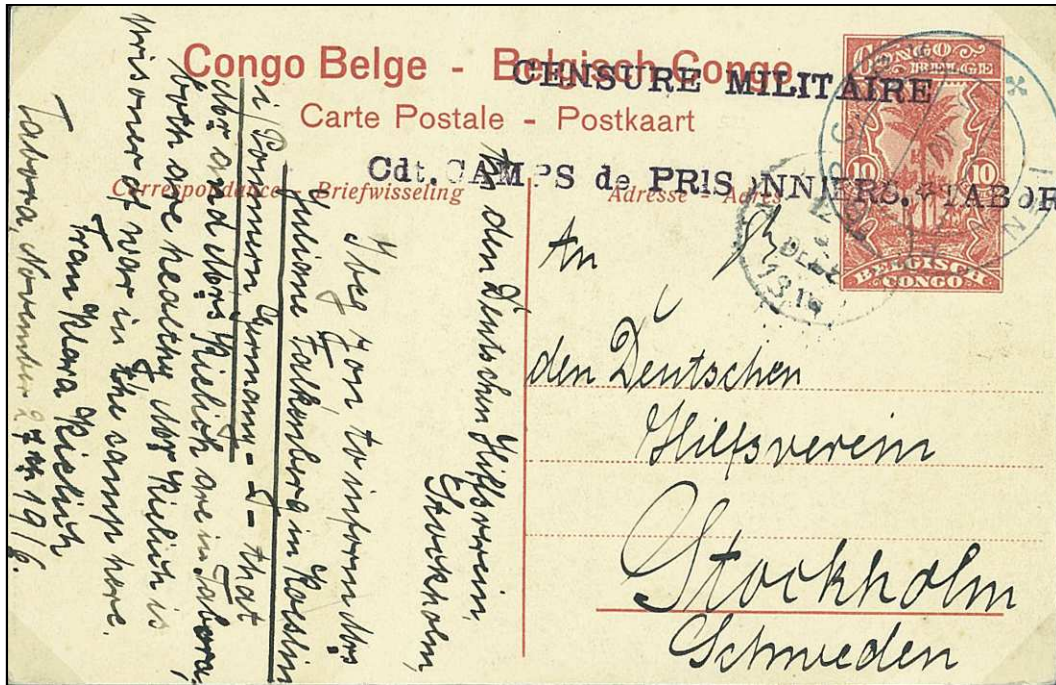 Congo Belge - Belgisch Congo
Carte Postale - Postkaart
CENSURE MILITAIRE
Cdt. CAMPS de PRISONNIERS. TABOR
Correspondance - Briefwisseling
Adresse - Adres
CONGO
BELGE
10 10
BELGISCH
CONGO
DEC
An
den Deutschen
Hilfsverein
Stockholm
Schweden
den Deutschen Hilfsverein,
Stockholm,
I beg you to inform Mrs
Juliane Falkenberg in Koeslin
i/Pommern Germany - that
Mr and Mrs Kielich are in Tabora,
both are healthy Mr Kielich is
prisoner of war in the camp here.
Frau Klara Kielich
Tabora, November 27th 1916.